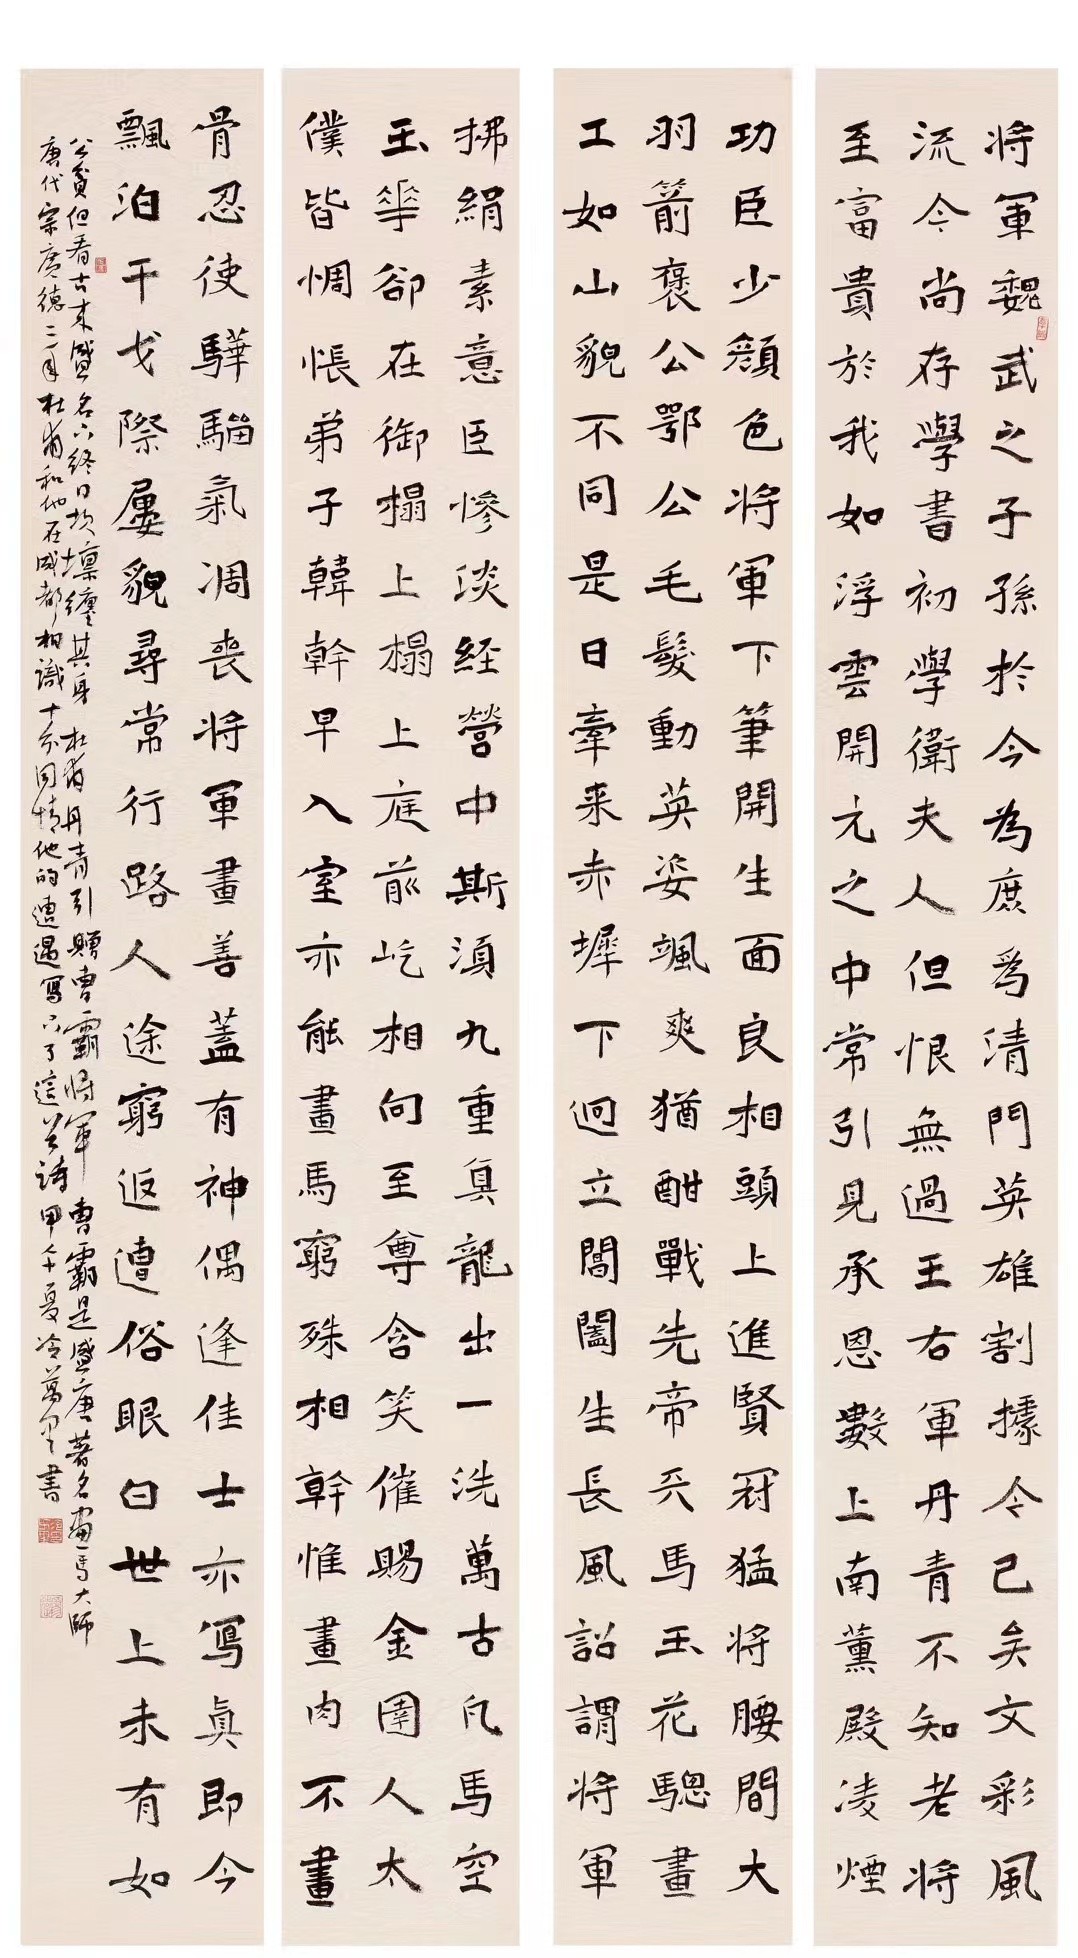 将軍魏武之子孫於今為庶為清門英雄割據今已矣文彩風
流今尚存學書初學衛夫人但恨無過王右軍丹青不知老将
至富貴於我如浮雲開元之中常引見承恩數上南薰殿凌煙
功臣少顏色将軍下筆開生面良相頭上進賢冠猛将腰間大
羽箭褒公鄂公毛髮動英姿颯爽猶酣戰先帝天馬玉花驄畫
工如山貌不同是日牽来赤墀下迥立閶闔生長風詔謂将軍
拂絹素意臣慘淡経營中斯須九重真龍出一洗萬古凡馬空
玉華卻在御榻上榻上庭前屹相向至尊含笑催賜金圉人太
僕皆惆悵弟子韓幹早入室亦能畫馬窮殊相幹惟畫肉不畫
骨忍使驊騮氣凋喪将軍畫善蓋有神偶逢佳士亦寫真即今
飄泊干戈際屢貌尋常行路人途窮返遭俗眼白世上未有如
公貧但看古来盛名下終日坎壈纏其身 杜甫丹青引贈曹霸将軍 曹霸是盛唐著名畫馬大師
唐代宗廣德二年杜甫和他在成都相識十分同情他的遭遇寫下了這首詩甲午夏冷萬里書